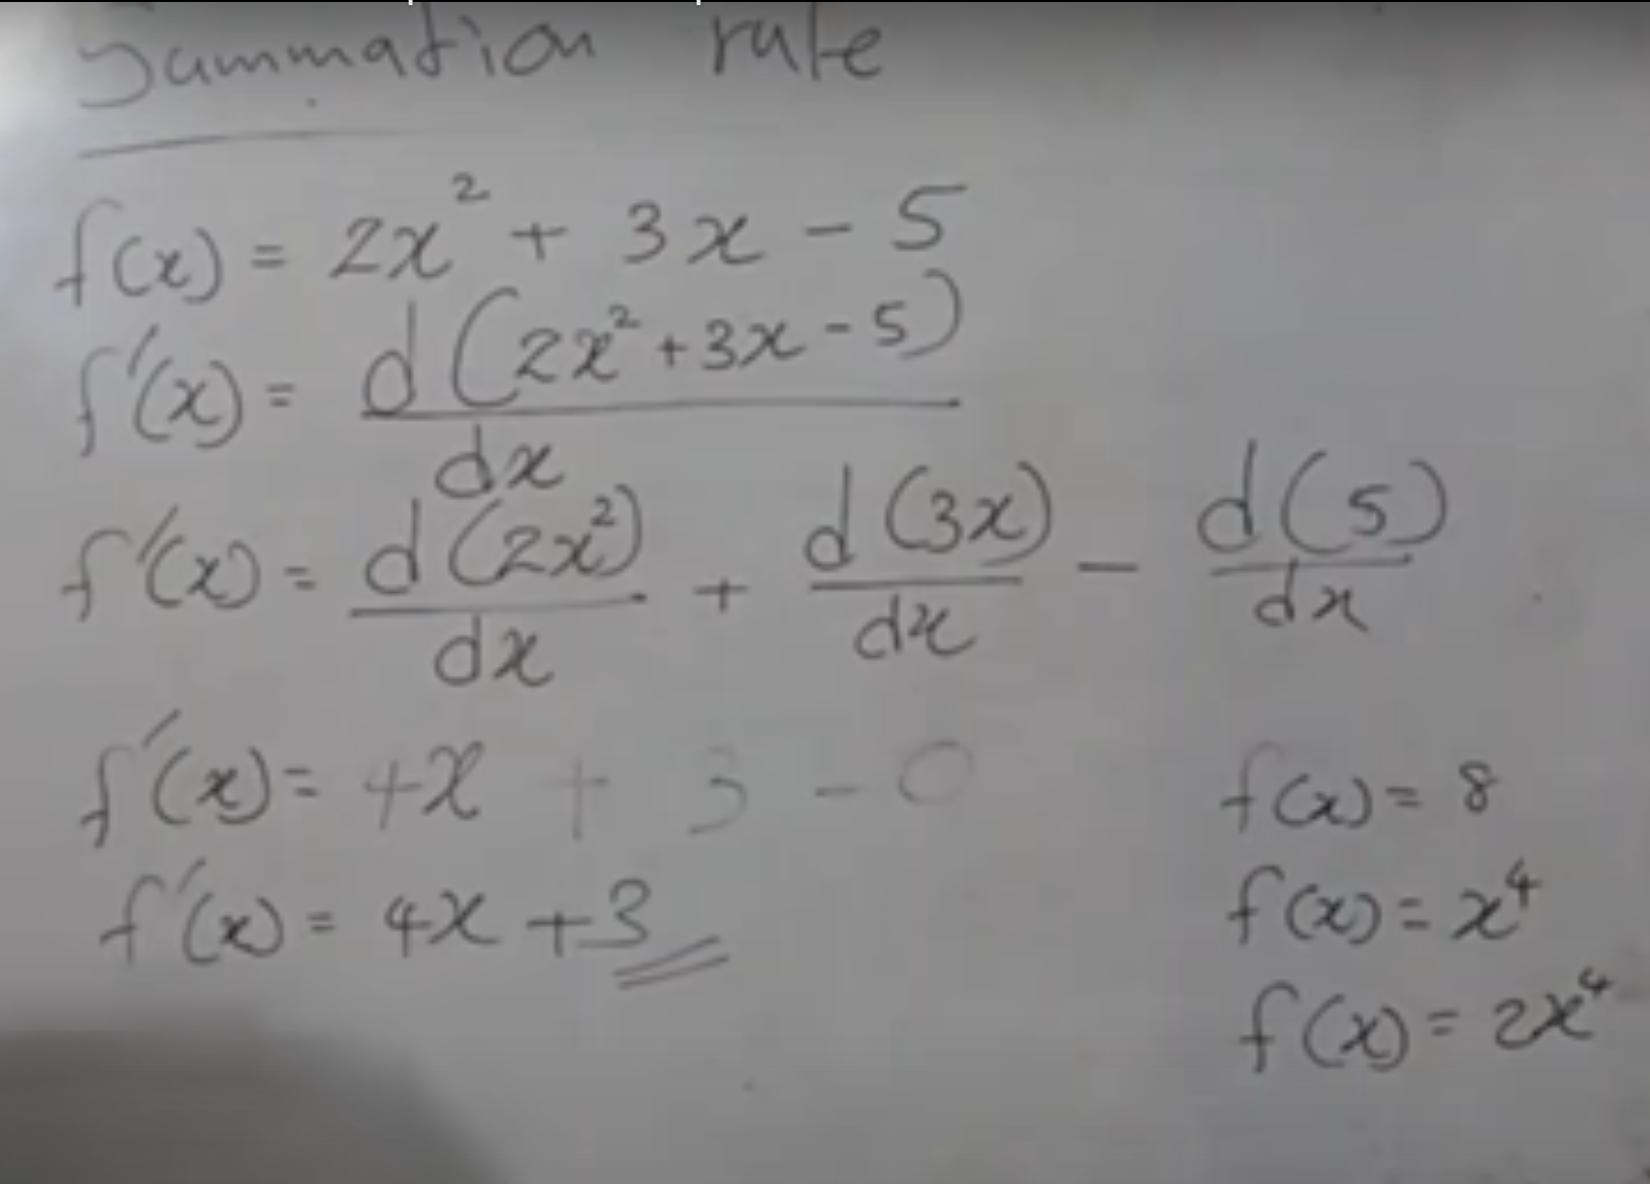 Summation rule
f(x) = 2x² + 3x - 5
f'(x) = d(2x²+3x-5)
dx
f'(x) = d(2x²) + d(3x) - d(5)
dx dx dx
f'(x) = 4x + 3 - 0
f'(x) = 4x + 3
f(x) = 8
f(x) = x⁴
f(x) = 2x⁴